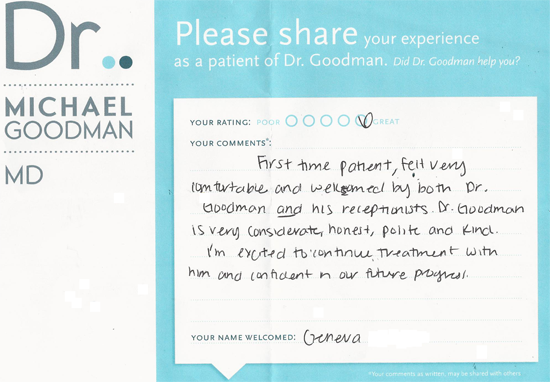 Dr..
MICHAEL
GOODMAN
MD
Please share your experience
as a patient of Dr. Goodman. Did Dr. Goodman help you?
YOUR RATING: POOR GREAT
YOUR COMMENTS*:
First time patient, felt very
comfortable and welcomed by both Dr.
Goodman and his receptionists. Dr. Goodman
is very considerate, honest, polite and kind.
I'm excited to continue treatment with
him and confident in our future progress.
YOUR NAME WELCOMED: Geneva
*Your comments as written, may be shared with others